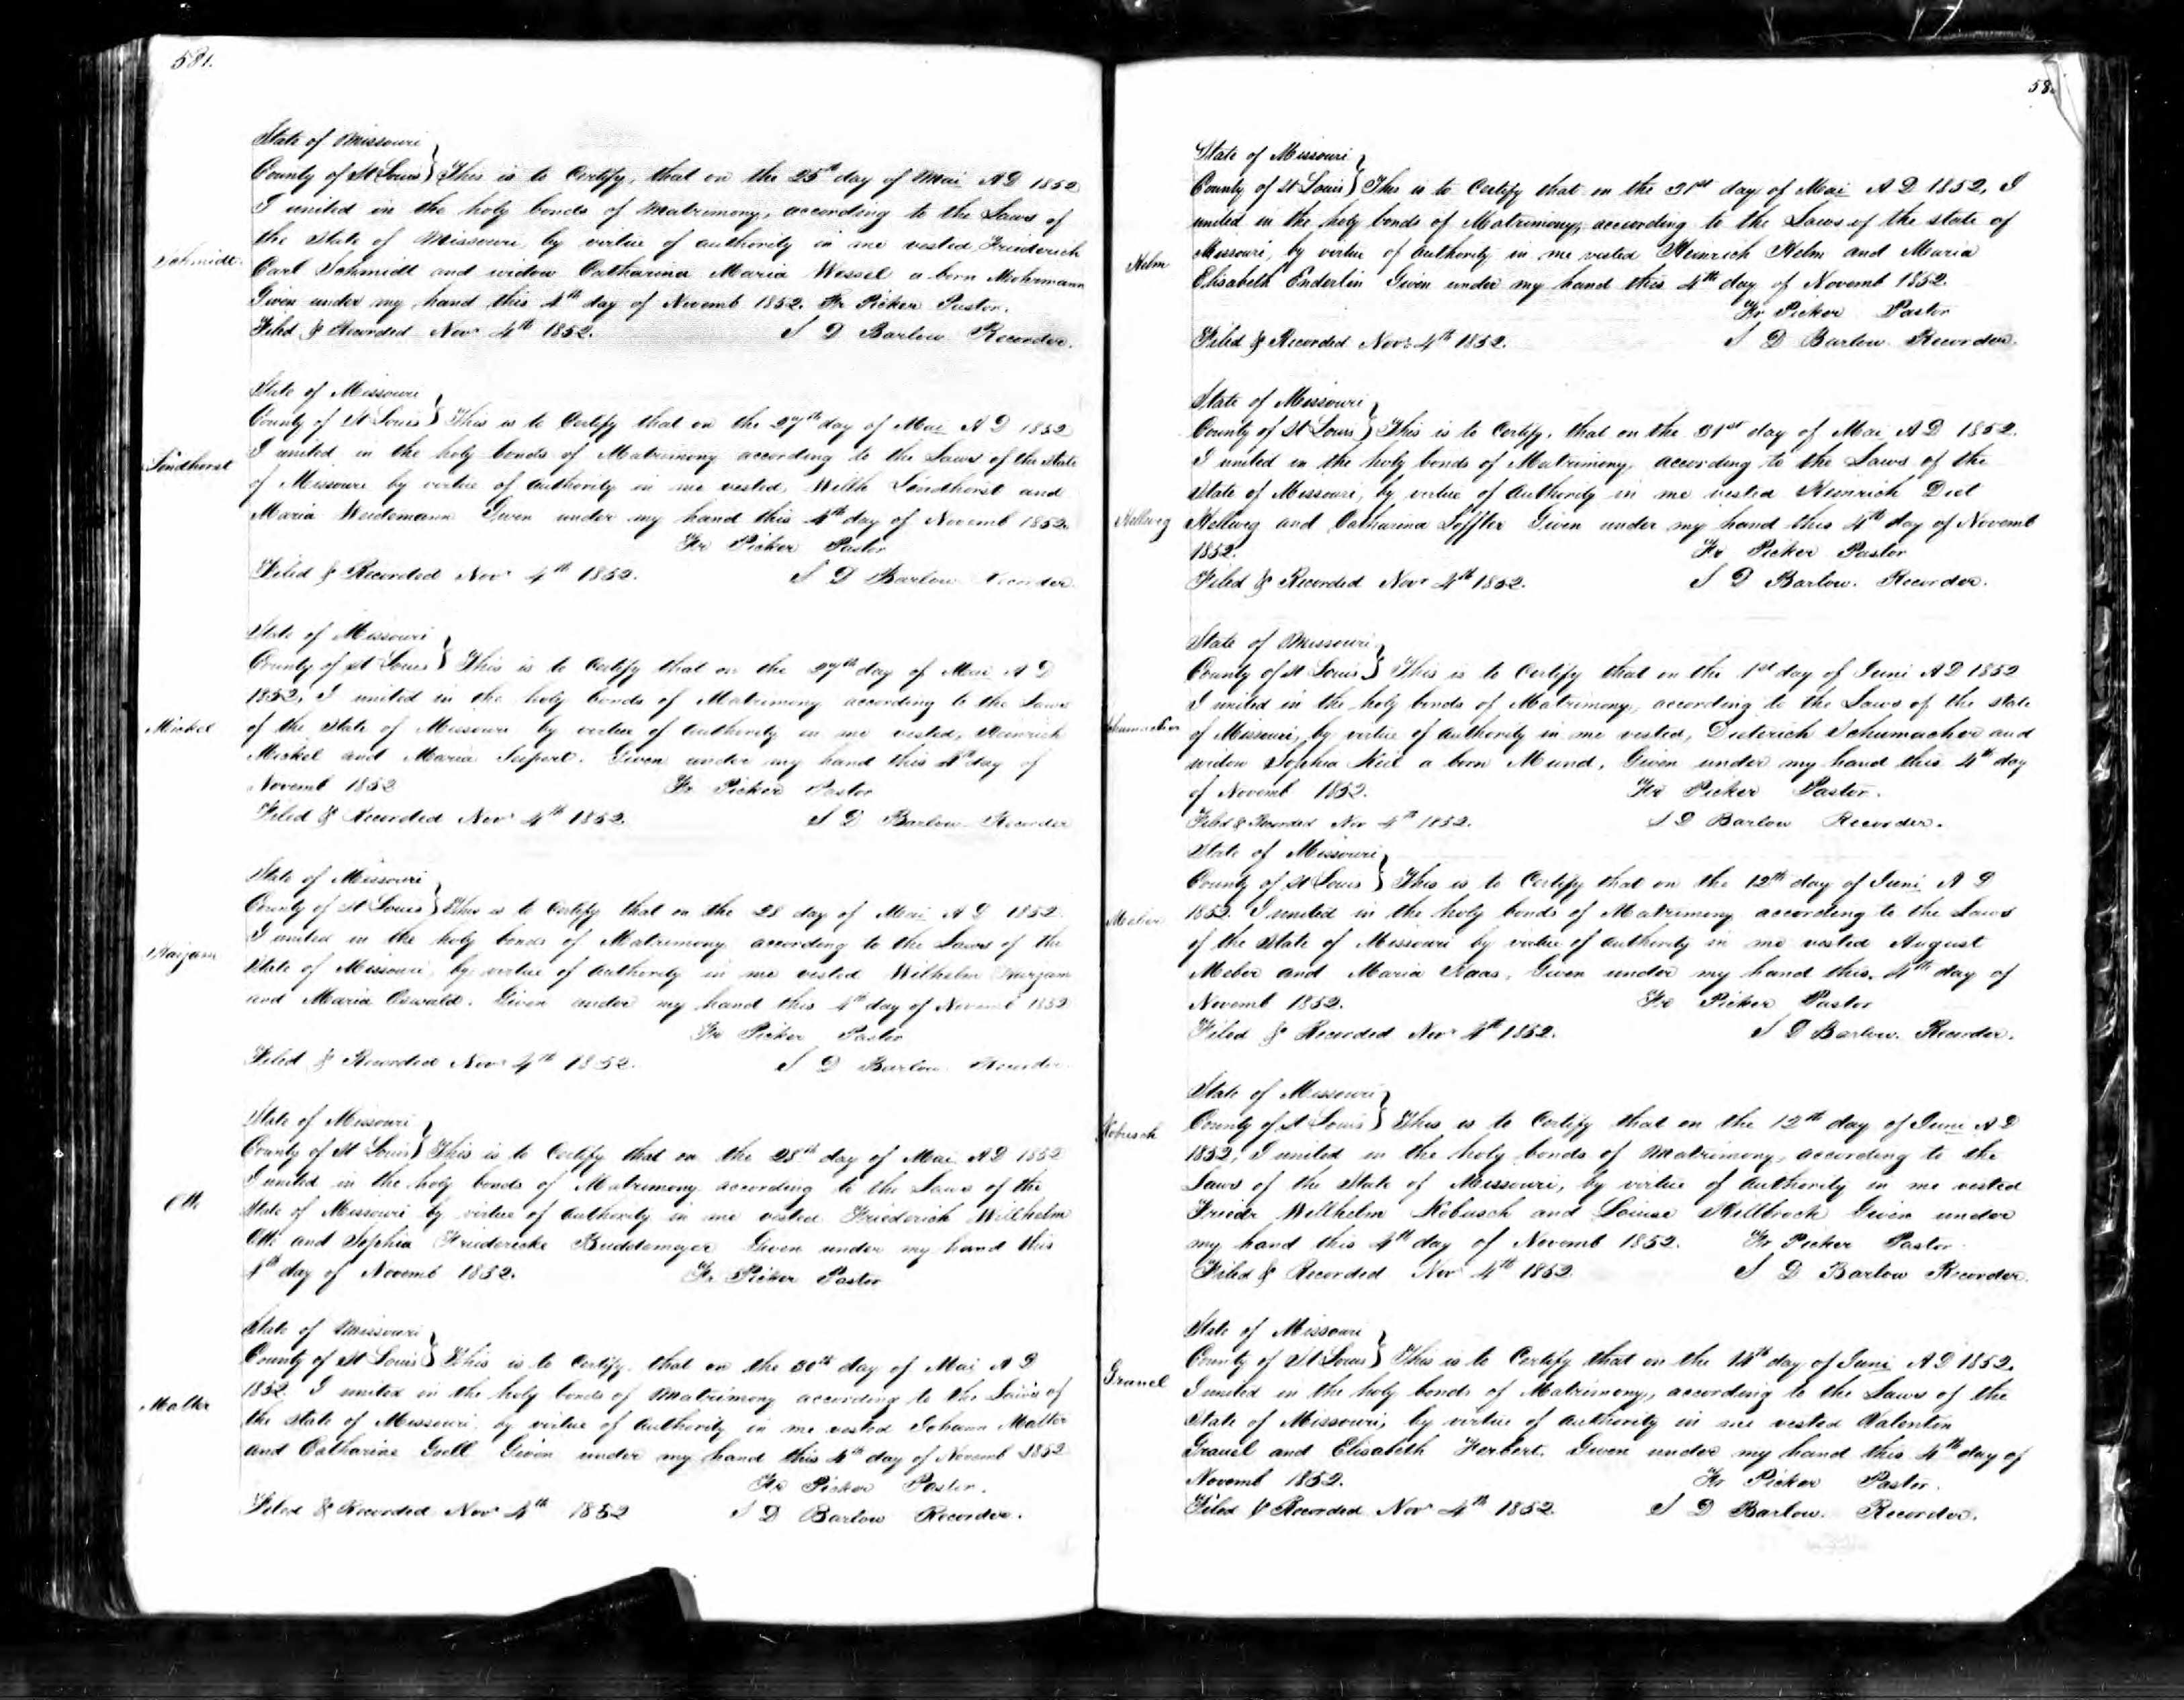 581.
State of Missouri
County of St Louis } This is to Certify, that on the 25th day of Mai A D 1852
I united in the holy bonds of Matrimony, according to the Laws of
the State of Missouri, by virtue of authority in me vested Friederich
Schmidt.
Carl Schmidt and widow Catharina Maria Wessel a born Mohrmann
Given under my hand this 4th day of Novemb 1852. Fr Picker Pastor.
Filed & Recorded Nov 4th 1852. S D Barlow Recorder.
State of Missouri
County of St Louis } This is to Certify that on the 27th day of Mai A D 1852
Lindhorst
I united in the holy bonds of Matrimony according to the Laws of the State
of Missouri by virtue of authority in me vested, Willh Lindhorst and
Maria Weidemann Given under my hand this 4th day of Novemb 1852.
Fr Picker Pastor
Filed & Recorded Nov 4th 1852. S D Barlow Recorder
State of Missouri
County of St Louis } This is to Certify that on the 27th day of Mai A D
1852, I united in the holy bonds of Matrimony according to the Laws
Mickel
of the State of Missouri by virtue of authority in me vested, Heinrich
Mickel and Maria Given under my hand this 4th day of
Novemb 1852 Fr Picker Pastor
Filed & Recorded Nov 4th 1852. S D Barlow Recorder
State of Missouri
County of St Louis } This is to Certify that on the 28 day of Mai A D 1852
I united in the holy bonds of Matrimony according to the Laws of the
State of Missouri, by virtue of authority in me vested Wilhelm
and Maria Oswald. Given under my hand this 4th day of Novemb 1852
Fr Picker Pastor
Filed & Recorded Nov 4th 1852. S D Barlow Recorder
State of Missouri
County of St Louis } This is to Certify that on the 28th day of Mai A D 1852
I united in the holy bonds of Matrimony according to the Laws of the
Otte
State of Missouri by virtue of authority in me vested Friederich Willhelm
Otte and Sophia Friedericke Buddemeyer Given under my hand this
4th day of Novemb 1852. Fr Picker Pastor
State of Missouri
County of St Louis } This is to Certify, that on the 30th day of Mai A D
1852. I united in the holy bonds of Matrimony according to the Laws of
Malter
the State of Missouri, by virtue of authority in me vested Johann Malter
and Catharine Goell Given under my hand this 4th day of Novemb 1852
Fr Picker Pastor.
Filed & Recorded Nov 4th 1852 S D Barlow Recorder.
State of Missouri
County of St Louis } This is to Certify that on the 31st day of Mai A D 1852, I
united in the holy bonds of Matrimony, according to the Laws of the state of
Helm
Missouri, by virtue of authority in me vested Heinrich Helm and Maria
Elisabeth Enderlin Given under my hand this 4th day of Novemb 1852.
Fr Picker Pastor
Filed & Recorded Nov 4th 1852. S D Barlow Recorder.
State of Missouri
County of St Louis } This is to Certify, that on the 31st day of Mai A D 1852.
I united in the holy bonds of Matrimony, according to the Laws of the
State of Missouri, by virtue of authority in me vested Heinrich Diet
Hellweg
Hellweg and Catharina Löffler Given under my hand this 4th day of Novemb
1852. Fr Picker Pastor
Filed & Recorded Nov 4th 1852. S D Barlow. Recorder.
State of Missouri
County of St Louis } This is to Certify that on the 1st day of Juni A D 1852
I united in the holy bonds of Matrimony, according to the Laws of the state
Schumacher
of Missouri, by virtue of authority in me vested, Dieterich Schumacher and
widow Sophia Keil a born Mund, Given under my hand this 4th day
of Novemb 1852. Fr Picker Pastor.
Filed & Recorded Nov 4th 1852. S D Barlow Recorder.
State of Missouri
County of St Louis } This is to Certify that on the 12th day of Juni A D
1852. I united in the holy bonds of Matrimony according to the Laws
of the State of Missouri by virtue of authority in me vested August
and Maria Haas, Given under my hand this, 4th day of
Novemb 1852. Fr Picker Pastor
Filed & Recorded Nov 4th 1852. S D Barlow. Recorder.
State of Missouri
Kobusch
County of St Louis } This is to Certify that on the 12th day of Juni A D
1852, I united in the holy bonds of Matrimony, according to the
Laws of the State of Missouri, by virtue of authority in me vested
Friedr Willhelm Kobusch and Louise Hillbrock Given under
my hand this 4th day of Novemb 1852. Fr Picker Pastor
Filed & Recorded Nov 4th 1852 S D Barlow Recorder.
State of Missouri
County of St Louis } This is to Certify that on the 14th day of Juni A D 1852.
Grauel
I united in the holy bonds of Matrimony, according to the Laws of the
State of Missouri, by virtue of authority in me vested Valentin
Grauel and Elisabeth Herbert. Given under my hand this 4th day of
Novemb 1852. Fr Picker Pastor.
Filed & Recorded Nov 4th 1852. S D Barlow. Recorder.